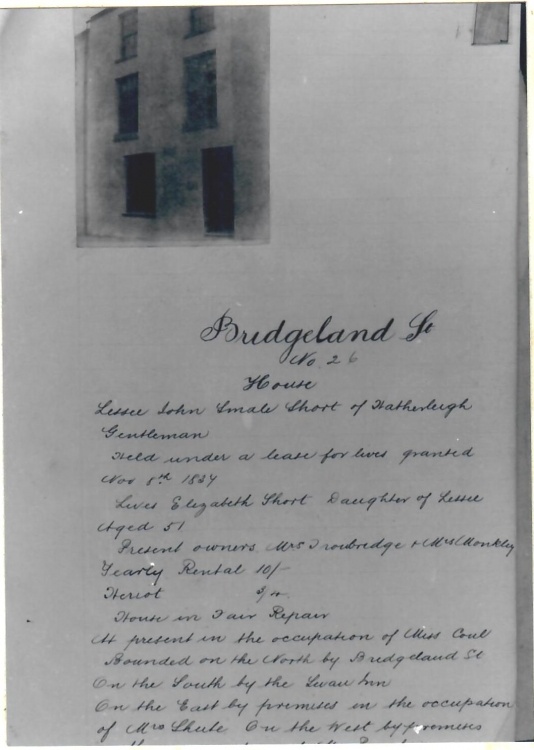 Bridgeland St
No 26
House
Lessee John Smale Short of Hatherleigh
Gentleman
Held under a lease for lives granted
Nov 8th 1824
Lives Elizabeth Short Daughter of Lessee
Aged 51
Present owners Mrs Trowbridge + Mrs Monkley
Yearly Rental 10/-
Heriot
House in Fair Repair
At present in the occupation of Miss
Bounded on the North by Bridgeland St
On the South by the Swan Inn
On the East by premises in the occupation
of Mrs Shute On the West by premises